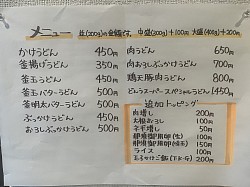 メニュー 並(200g)の金額です。 中盛(300g)+100円 大盛(400g)+200円
かけうどん 450円
釜揚げうどん 350円
釜玉うどん 450円
釜玉バターうどん 500円
釜明太バターうどん 500円
ぶっかけうどん 450円
おろしぶっかけうどん 500円
肉うどん 650円
肉おろしぶっかけうどん 700円
鶏玉豚肉うどん 700円
スペシャルうどん 450円
追加トッピング
肉増し 200円
大根おろし 100円
ネギ増し 50円
那須御養卵(生) 100円
那須御養卵(味玉) 150円
ライス 100円
玉子かけご飯(T.K.G) 200円